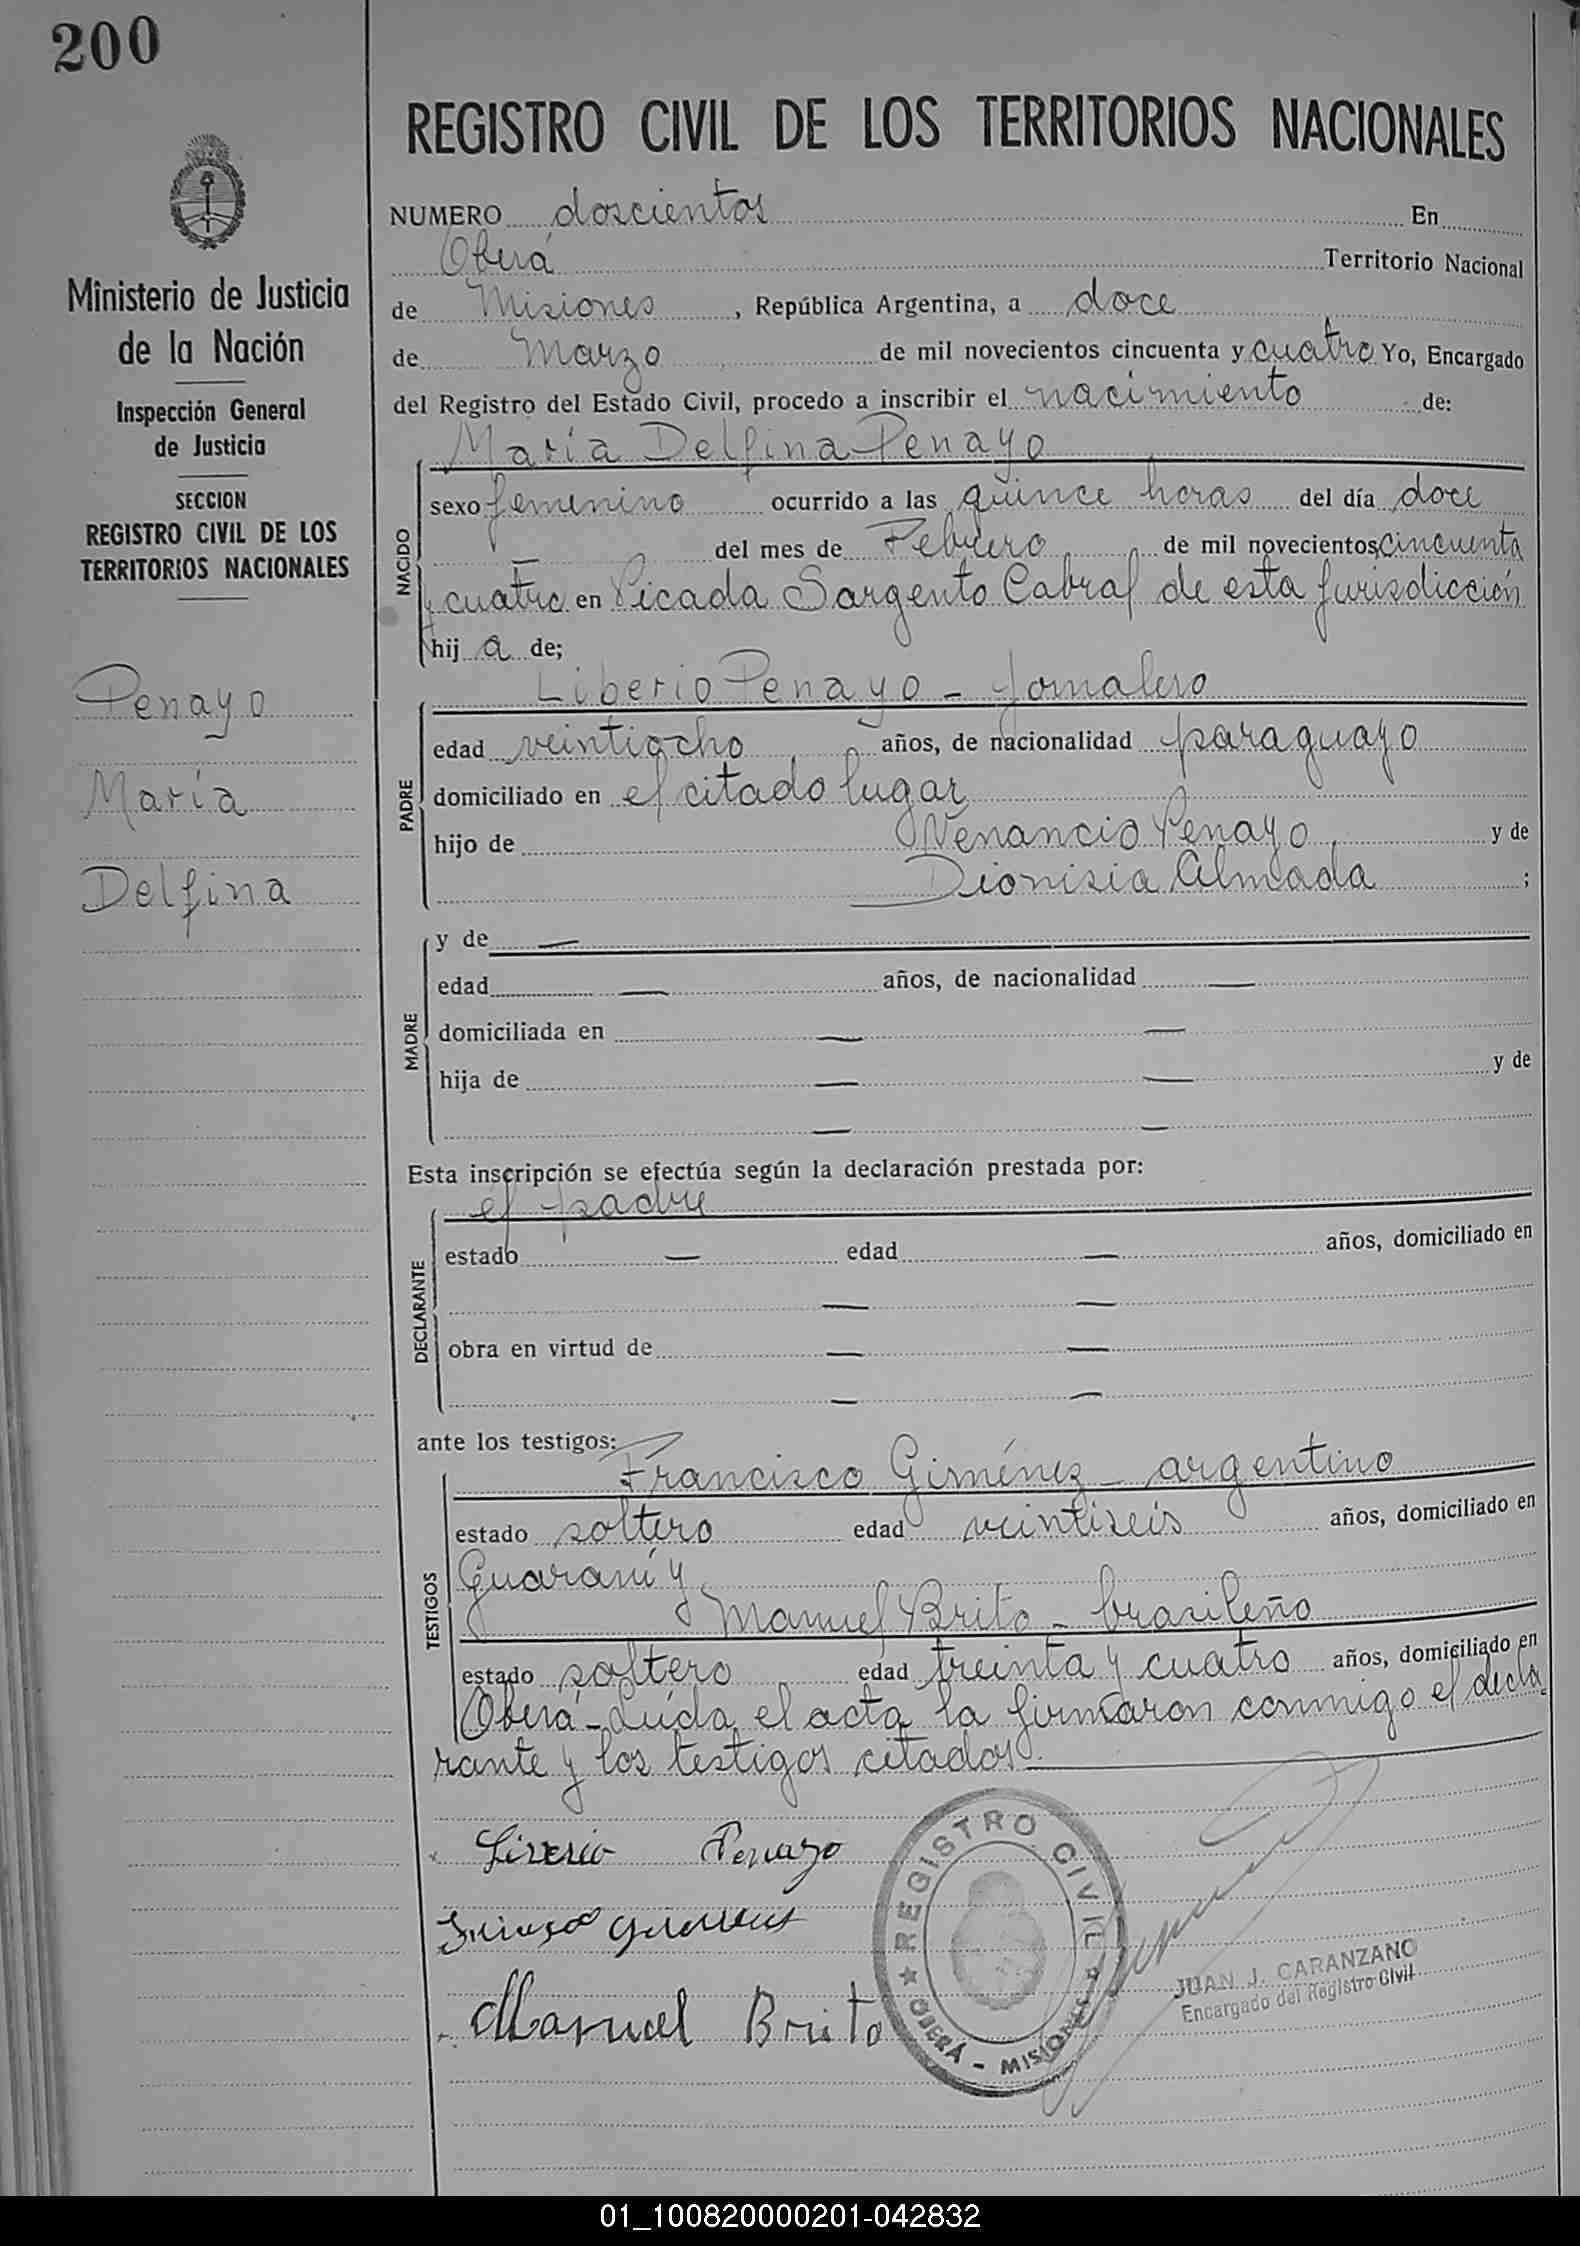 200
Ministerio de Justicia
de la Nación
Inspección General
de Justicia
SECCION
REGISTRO CIVIL DE LOS
TERRITORIOS NACIONALES
Penayo
María
Delfina
REGISTRO CIVIL DE LOS TERRITORIOS NACIONALES
NUMERO doscientos En
Oberá Territorio Nacional
de Misiones, República Argentina, a doce
de Marzo de mil novecientos cincuenta y cuatro Yo, Encargado
del Registro del Estado Civil, procedo a inscribir el nacimiento de:
María Delfina Penayo
NACIDO
sexo femenino ocurrido a las quince horas del día doce
— del mes de Febrero de mil novecientos cincuenta
y cuatro en Picada Sargento Cabral de esta jurisdicción
hij a de;
Liberio Penayo - jornalero
PADRE
edad veintiocho años, de nacionalidad paraguayo
domiciliado en el citado lugar
hijo de Venancio Penayo y de
Dionisia Almada ;
MADRE
y de —
edad — años, de nacionalidad —
domiciliada en — —
hija de — — y de
— —
Esta inscripción se efectúa según la declaración prestada por:
el padre
DECLARANTE
estado — edad — años, domiciliado en
— —
obra en virtud de — —
— —
ante los testigos:
Francisco Giménez - argentino
TESTIGOS
estado soltero edad veintiseis años, domiciliado en
Guaraní y
Manuel Brito - brasileño
estado soltero edad treinta y cuatro años, domiciliado en
Oberá - Leída el acta la firmaron conmigo el decla
rante y los testigos citados.
Liverio Penayo
Manuel Brito
REGISTRO CIVIL
OBERÁ - MISIONES
JUAN J. CARANZANO
Encargado del Registro Civil
01_100820000201-042832